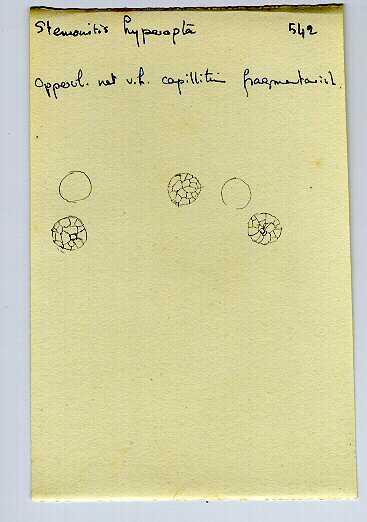 Stemonitis hyperopta 542
oppervl. net v.h. capillitium fragmentarisch.